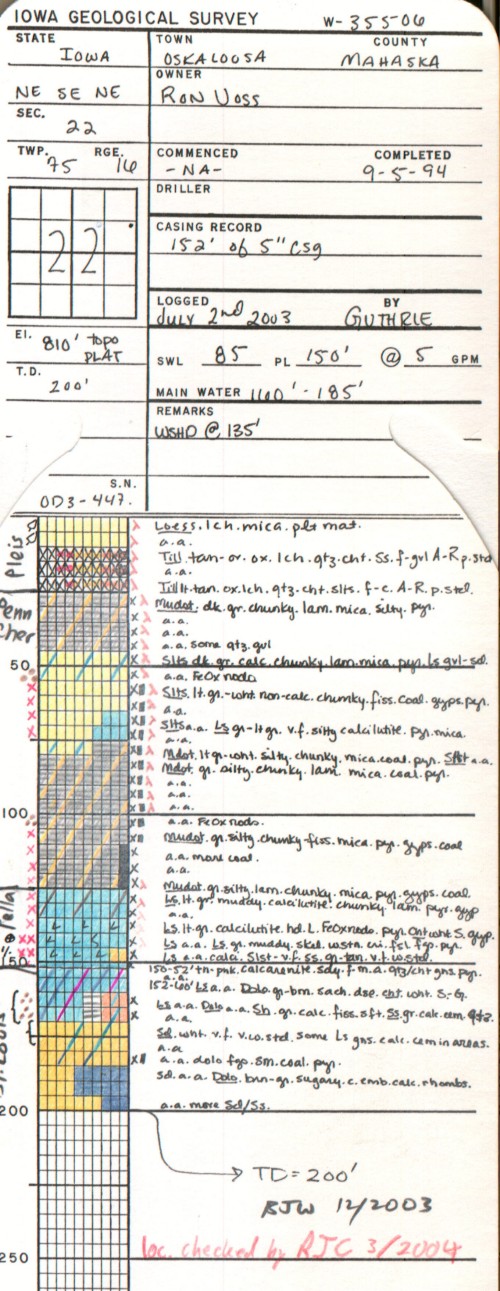 IOWA GEOLOGICAL SURVEY W-35506
STATE TOWN COUNTY
IOWA OSKALOOSA MAHASKA
OWNER
NE SE NE RON VOSS
SEC.
22
TWP. RGE. COMMENCED COMPLETED
75 16 -NA- 9-5-94
DRILLER
CASING RECORD
22 152' of 5" csg
LOGGED BY
July 2nd 2003 GUTHRIE
El. 810' topo
PLAT
SWL 85 PL 150' @ 5 GPM
T.D.
200'
MAIN WATER 160'-185'
REMARKS
WSHD @ 135'
S.N.
OD3-447.
Pleis
Loess. lch. mica. plt mat.
a.a.
Till tan-or. ox. lch. qtz. cht. Ss. f-gvl A-R p. std
a.a.
Till lt. tan. ox. lch. qtz. cht. slts. f-c. A-R. p. std.
Penn
Cher
Mudst. dk. gr. chunky. lam. mica. silty. pyr.
a.a.
a.a.
a.a. some qtz gvl
50
Slts dk. gr. calc. chunky. lam. mica. pyr. Ls gvl-sd.
a.a. FeOx nods
Slts. lt. gr.-wht non-calc. chunky. fiss. coal. gyps. pyr.
a.a.
Slts a.a. Ls gr-lt gr. v.f. silty calcilutite. pyr. mica.
a.a.
Mdst. lt gr-wht. silty. chunky. mica. coal. pyr. Slts a.a.
Mdst. gr. silty. chunky. lam. mica. coal. pyr.
a.a.
a.a.
a.a.
100
a.a. FeOx nods.
Mudst. gr. silty. chunky-fiss. mica. pyr. gyps. coal
a.a. more coal.
a.a.
Mudst. gr. silty. lam. chunky. mica. pyr. gyps. coal.
Pella
Ls. lt. gr. muddy. calcilutite. chunky. lam. pyr. gyp
a.a.
Ls. lt. gr. calcilutite. hd. L. FeOx nods. pyr. cht wht S. gyp.
Ls a.a. Ls. gr. muddy. skel. wstn. cri. fsl. fgo. pyr.
150
Ls a.a. calci. Slst-v.f. ss. gr-tan. v.f. w. std.
150-52' tn-pnk. calcarenite. sdy. f-m. a. qtz/cht gns. pyr.
152-60' Ls a.a. Dolo. gr-brn. sach. dse. cht. wht. S-G.
Ls a.a. Dolo a.a. Sh. gr. calc. fiss. sft. Ss. gr. calc. cem. Qtz.
a.a.
Sd. wht. v.f. v.w. std. some Ls gns. calc. cem in areas.
a.a
a.a. dolo fgo. sm. coal. pyr.
sd. a.a. Dolo. brn-gr. sugary. c. emb. calc. rhombs.
200
a.a. more Sd/Ss.
TD=200'
BJW 12/2003
loc. checked by RJC 3/2004
250